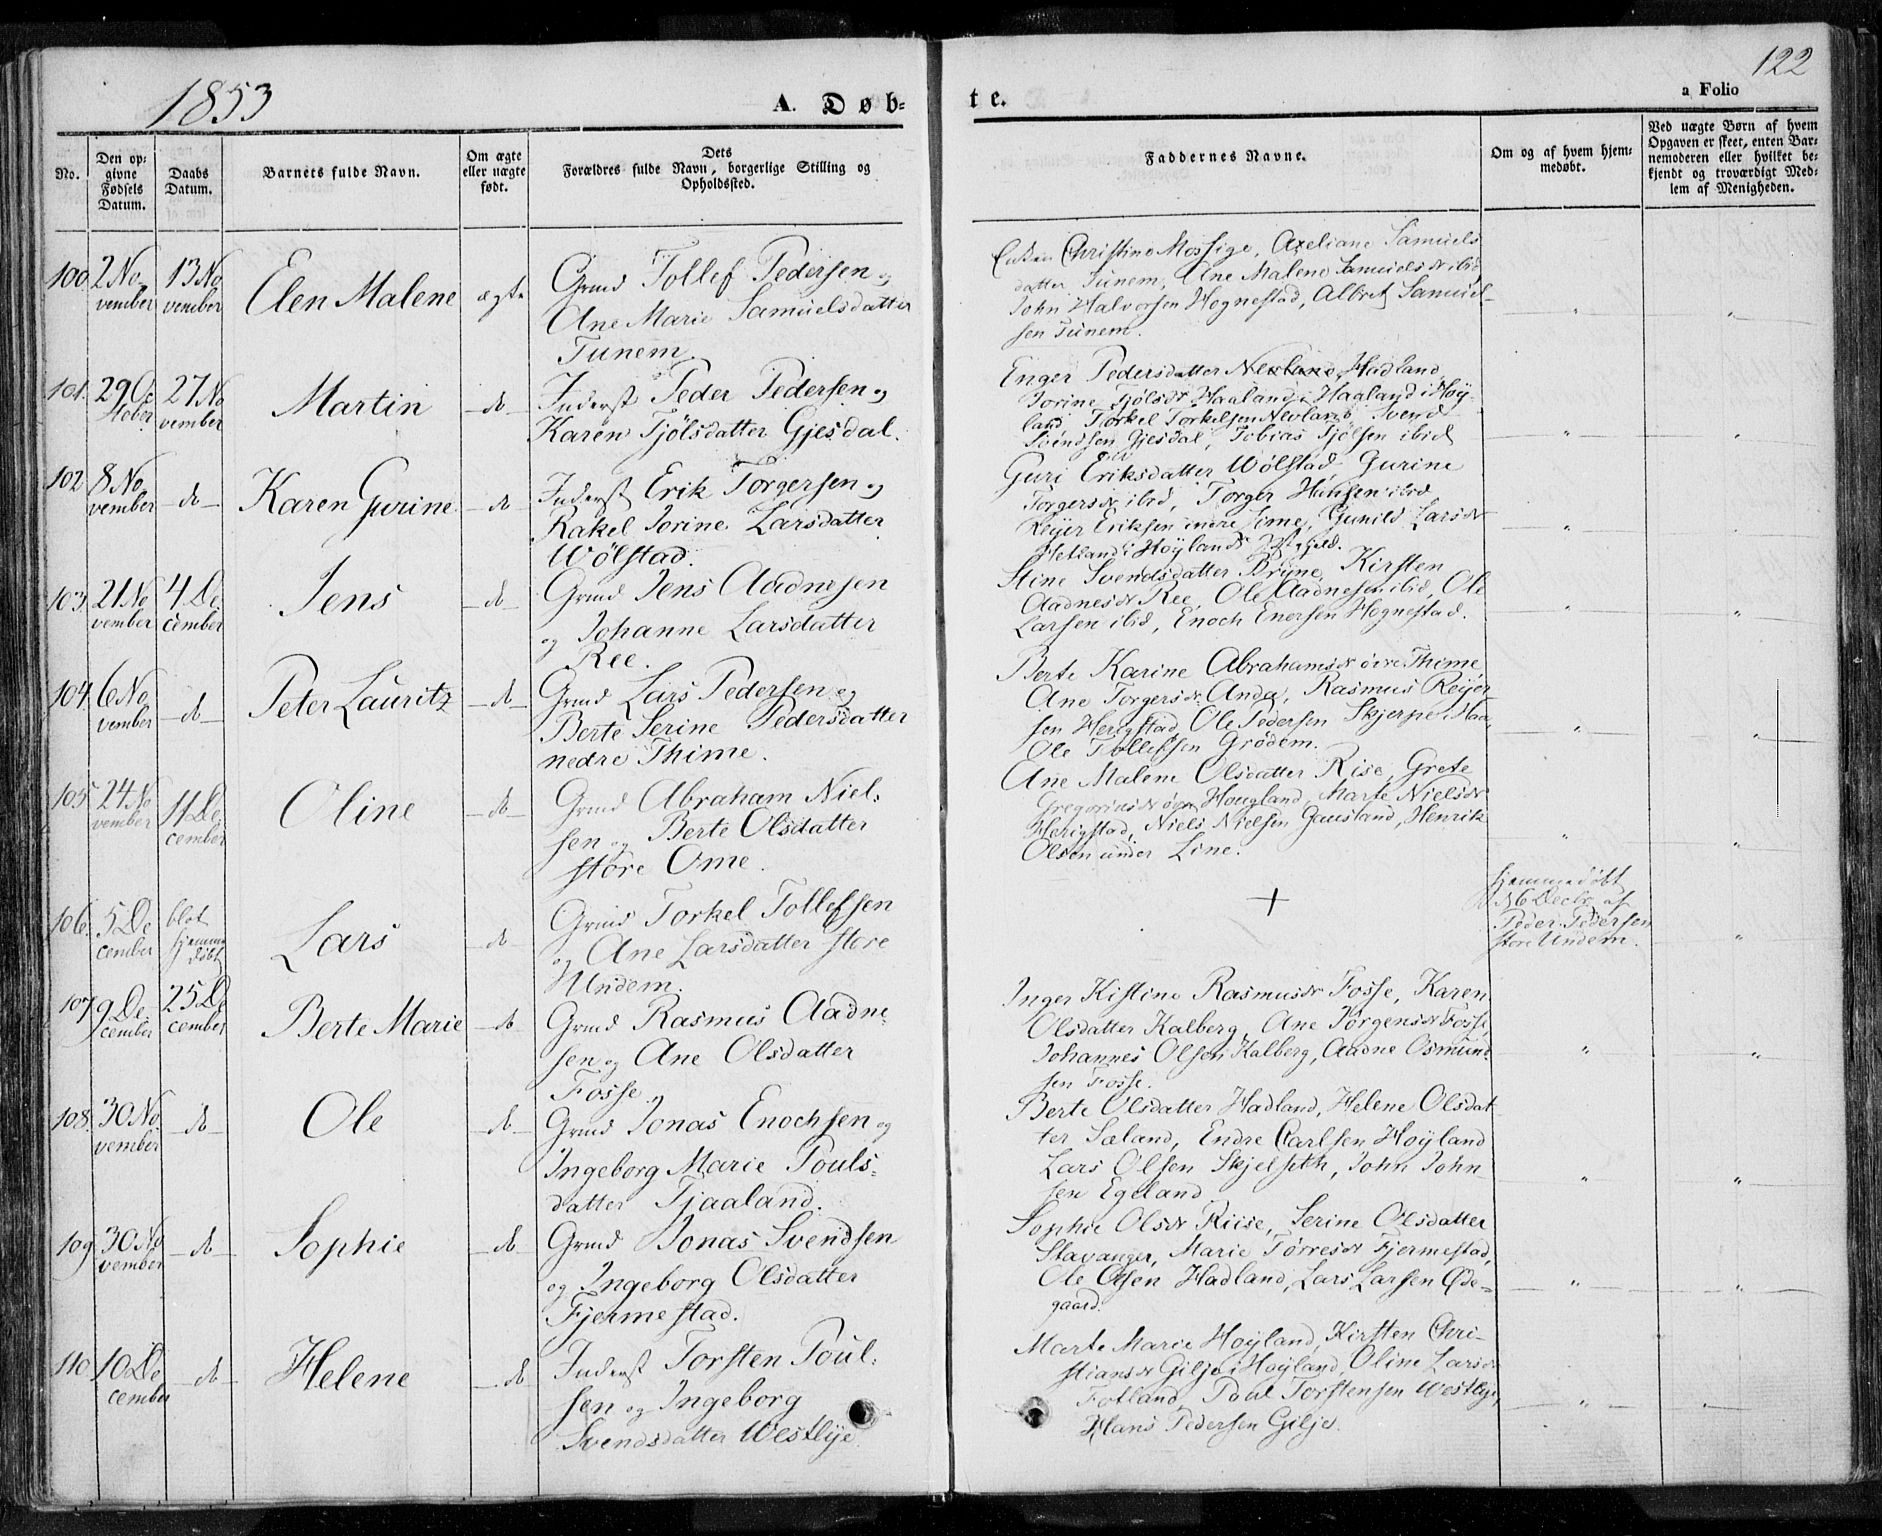 1853
A. Døb-
te.
122
a Folio
No.
Den op-
givne
Fødsels
Datum.
Daabs
Datum.
Barnets fulde Navn.
Om ægte
eller uægte
født.
Dets
Forældres fulde Navn, borgerlige Stilling og
Opholdssted.
Faddernes Navne.
Om og af hvem hjem-
medøbt.
Ved uægte Børn af hvem
Opgaven er skeet, enten Bar-
nemoderen eller hvilket be-
kjendt og troværdigt Med-
lem af Menigheden.
100.
2 No
vember
13 No
vember
Elen Malene
ægte
Grmd Tollef Pedersen og
Ane Marie Samuelsdatter
Tunem.
Enken Christine Mossige, Axeliane Samuels
datter Tunem, Ane Malene Samuelsdr ibid
John Halvorsen Hognestad, Albret Samuel-
sen Tunem.
101.
29 Oc
tober
27 No
vember
Martin
do
Inderst Peder Pedersen og
Karen Tjølsdatter Gjesdal.
Enger Pedersdatter Hadland,
Jorine Tjølsdr Haaland i Høy-
land Torkel Torkelsen Nevland Svend
Svendsen Gjesdal, Tobias Tjølsen ibid
102
8 No
vember
do
Karen Gurine
do
Inderst Erik Torgersen og
Rakel Jorine Larsdatter
Wølstad.
Guri Eriksdatter Wølstad, Gurine
Torgersdr ibid, Torger Hansen ibid
Reyer Eriksen indre Lime, Gunild Larsdr
Hetland i Høylands Pstgjeld.
103.
21 No
vember
4 De
cember
Jens
do
Grmd Jens Aadnesen
og Johanne Larsdatter
Ree.
Stine Svendsdatter Bryne, Kirsten
Aadnesdr Ree, Ole Aadnesen ibid, Ole
Larsen ibid, Enoch Enersen Hognestad.
104.
6 No
vember
do
Peter Lauritz
do
Grmd Lars Pedersen og
Berte Serine Pedersdatter
nedre Thime.
Berte Karine Abrahamsdr øvre Thime
Ane Torgersdr Anda, Rasmus Reyer-
sen Herigstad, Ole Pedersen Skjerpe i Haa,
Ole Tollefsen Grødem.
105
24 No
vember
11 De
cember
Oline
do
Grmd Abraham Niel-
sen og Berte Olsdatter
store Ome.
Ane Malene Olsdatter Rise, Grete
Gregoriusdr øvre Hougland, Marte Nielsdr
Herigstad, Niels Nielsen Gausland, Henrik
Olsen under Line.
106.
5 De
cember
blot
hjemme
døbt
Lars
do
Grmd Torkel Tollefsen
og Ane Larsdatter store
Undem.
+
hjemmedøbt
d 6 Decbr af
Peder Pedersen
store Undem.
107
9 De
cember
25 De
cember
Berte Marie
do
Grmd Rasmus Aadne
sen og Ane Olsdatter
Fosse.
Inger Kistine Rasmusdr Fosse, Karen
Olsdatter Kalberg, Ane Jørgensdr Fosse
Johannes Olsen Kalberg, Aadne Osmund-
sen Fosse.
108.
30 No
vember
do
Ole
do
Grmd Jonas Enochsen og
Ingeborg Marie Pouls-
datter Tjaaland.
Berte Olsdatter Hadland, Helene Olsdat-
ter Sæland, Endre Carlsen Høyland
Lars Olsen Skjelseth, John John-
sen Egeland
109
30 No
vember
do
Sophie
do
Grmd Jonas Svendsen
og Ingeborg Olsdatter
Fjermestad.
Sophie Olsdr Riise, Serine Olsdatter
Stavanger, Marie Tørresdr Fjermestad,
Ole Olsen Hadland, Lars Larsen Øde-
gaard.
110.
10 De
cember
do
Helene
do
Inderst Torsten Poul-
sen og Ingeborg
Svendsdatter Westlye
Marte Marie Høyland, Kirsten Chri-
stiansdr Gilje i Høyland, Oline Larsdr
Fotland, Poul Torstensen Westlye,
Hans Pedersen Gilje.